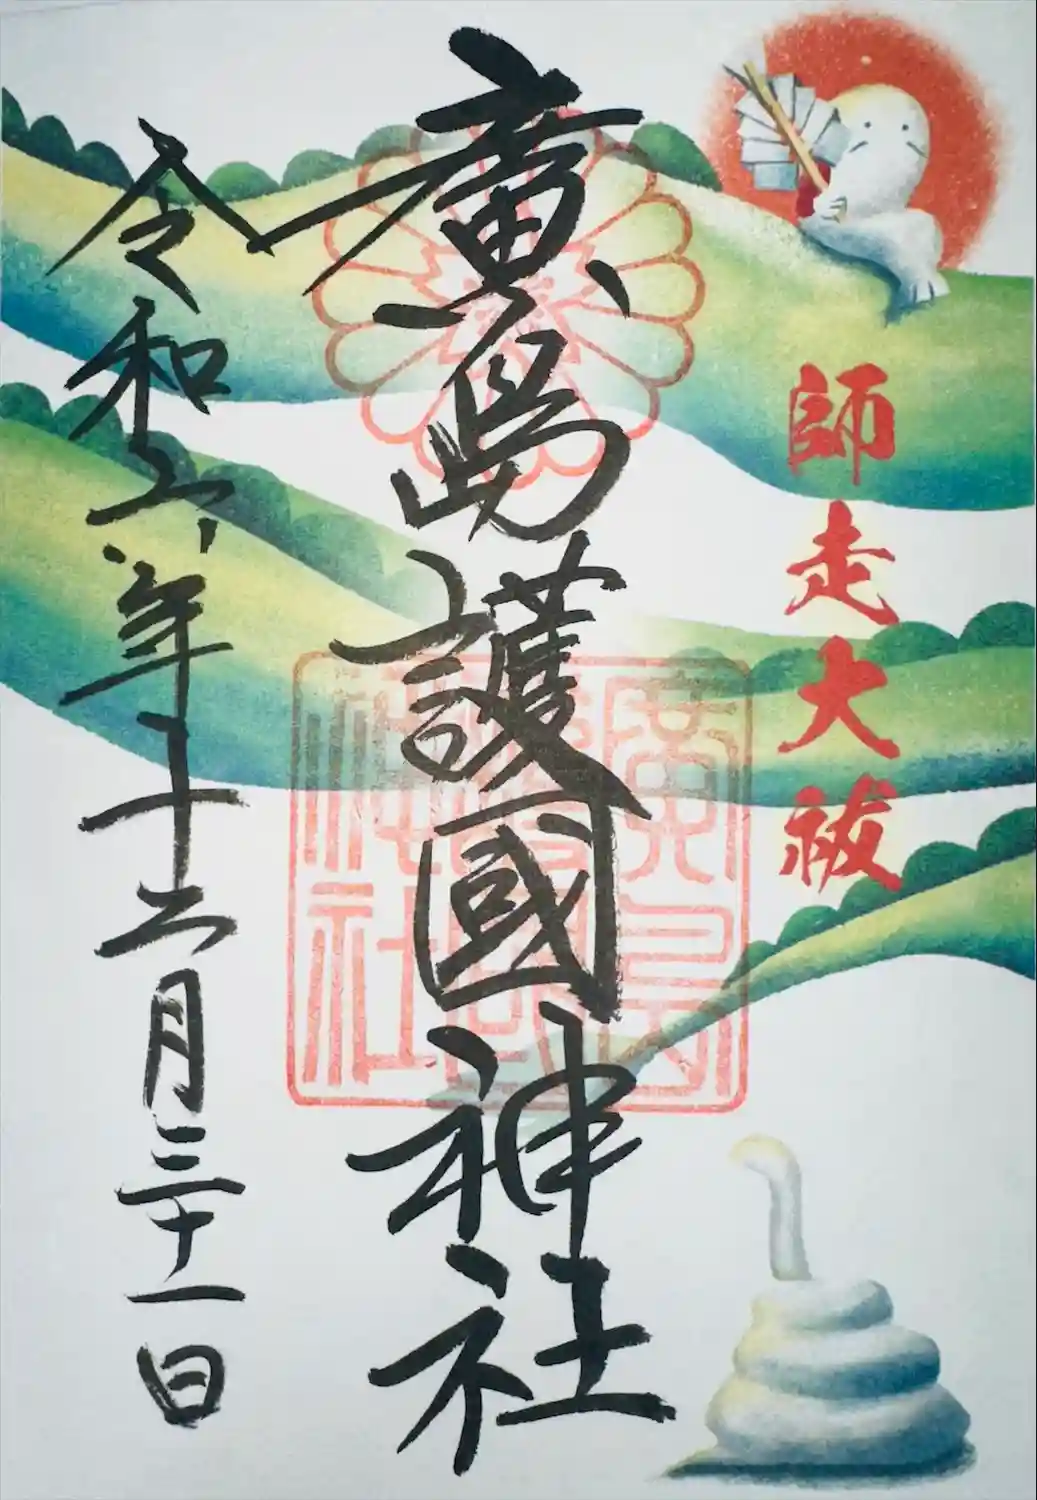 師走大祓
廣島護國神社
令和六年十二月三十一日
廣島護國神社